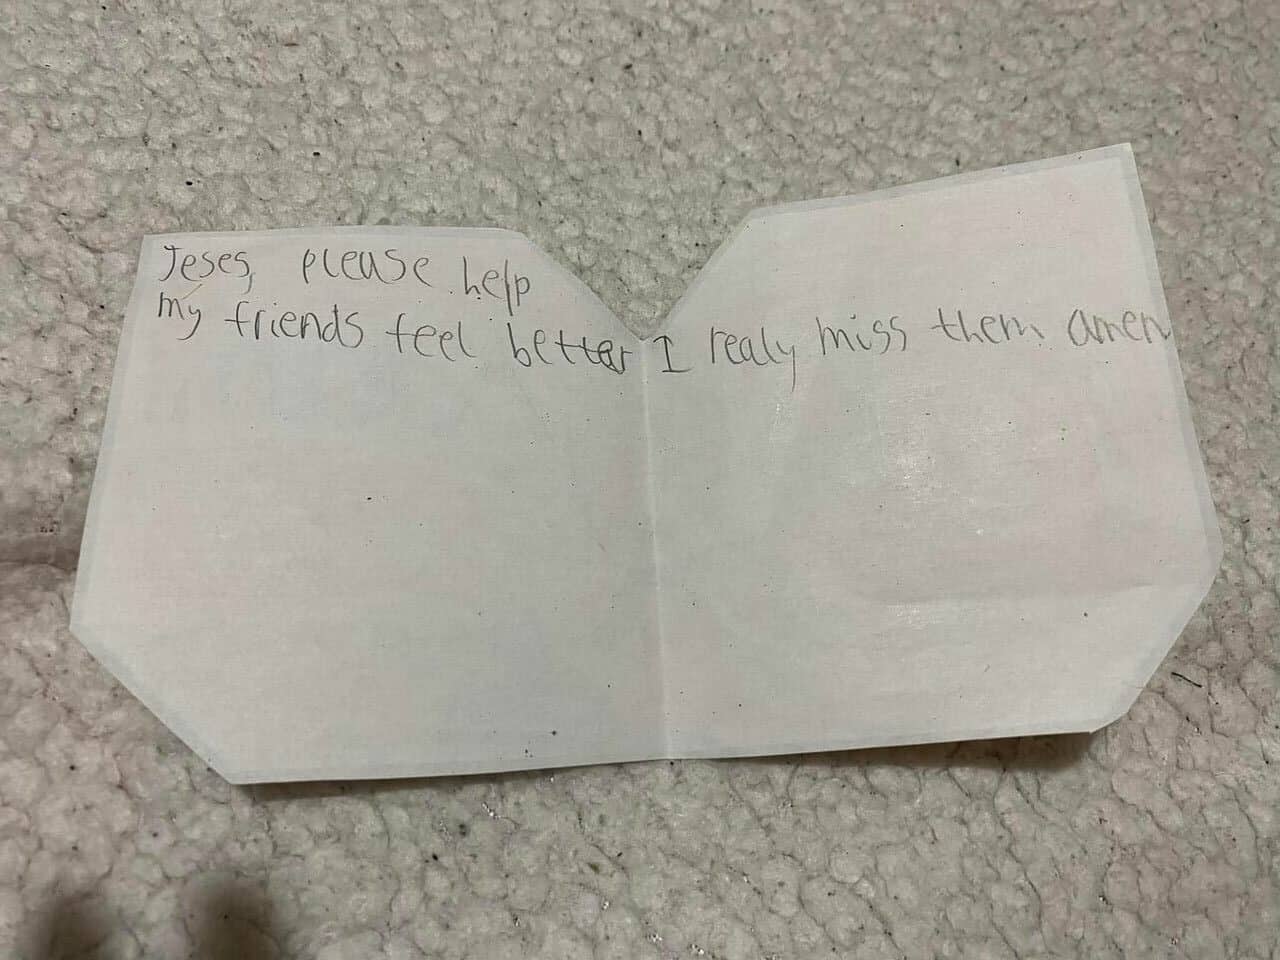 Jeses, please help
my friends feel better I realy miss them amen